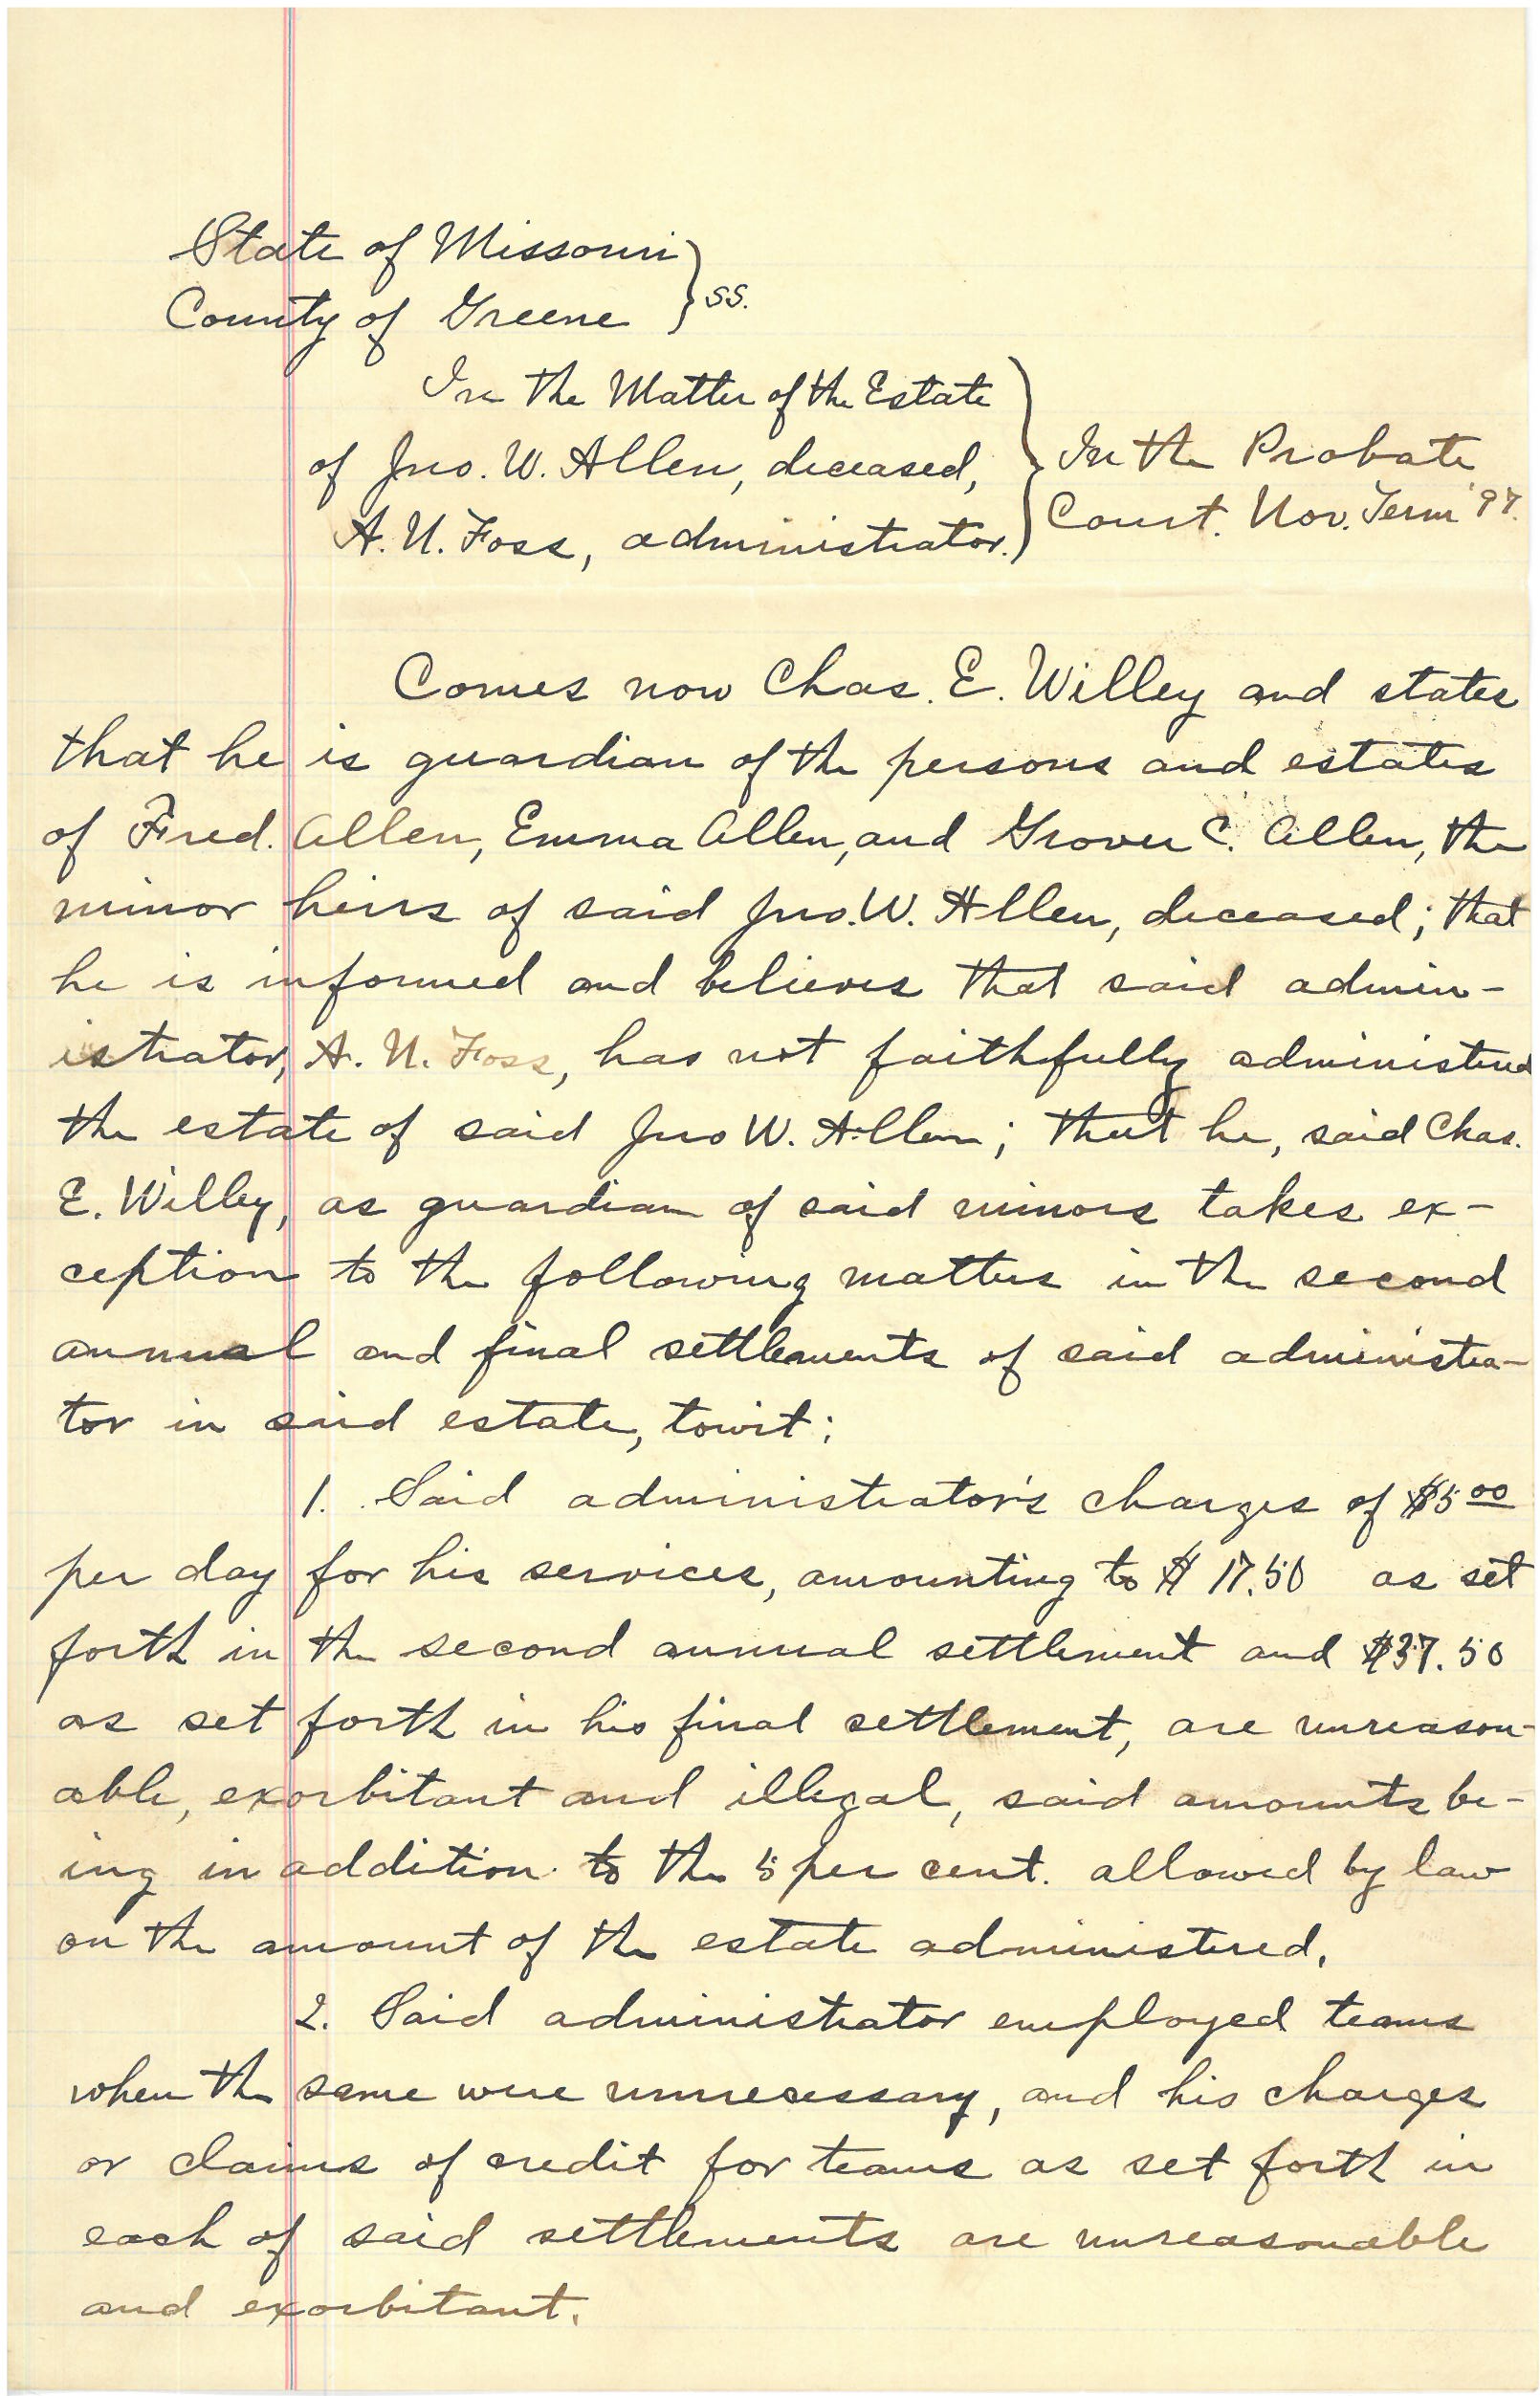 State of Missouri
County of Greene } ss.
In the Matter of the Estate
of Jno. W. Allen, deceased,
A. N. Foss, administrator. }
In the Probate
Court. Nov. Term '97.
Comes now Chas. E. Willey and states
that he is guardian of the persons and estates
of Fred. Allen, Emma Allen, and Grover C. Allen, the
minor heirs of said Jno. W. Allen, deceased; that
he is informed and believes that said admin-
istrator, A. N. Foss, has not faithfully administered
the estate of said Jno W. Allen; that he, said Chas.
E. Willey, as guardian of said minors takes ex-
ception to the following matters in the second
annual and final settlements of said administra-
tor in said estate, towit:
1. Said administrator's charges of $5 00
per day for his services, amounting to $17.50 as set
forth in the second annual settlement and $37.50
as set forth in his final settlement, are unreason-
able, exorbitant and illegal, said amounts be-
ing in addition to the 5 per cent. allowed by law
on the amount of the estate administered.
2. Said administrator employed teams
when the same were unnecessary, and his charges
or claims of credit for teams as set forth in
each of said settlements are unreasonable
and exorbitant.